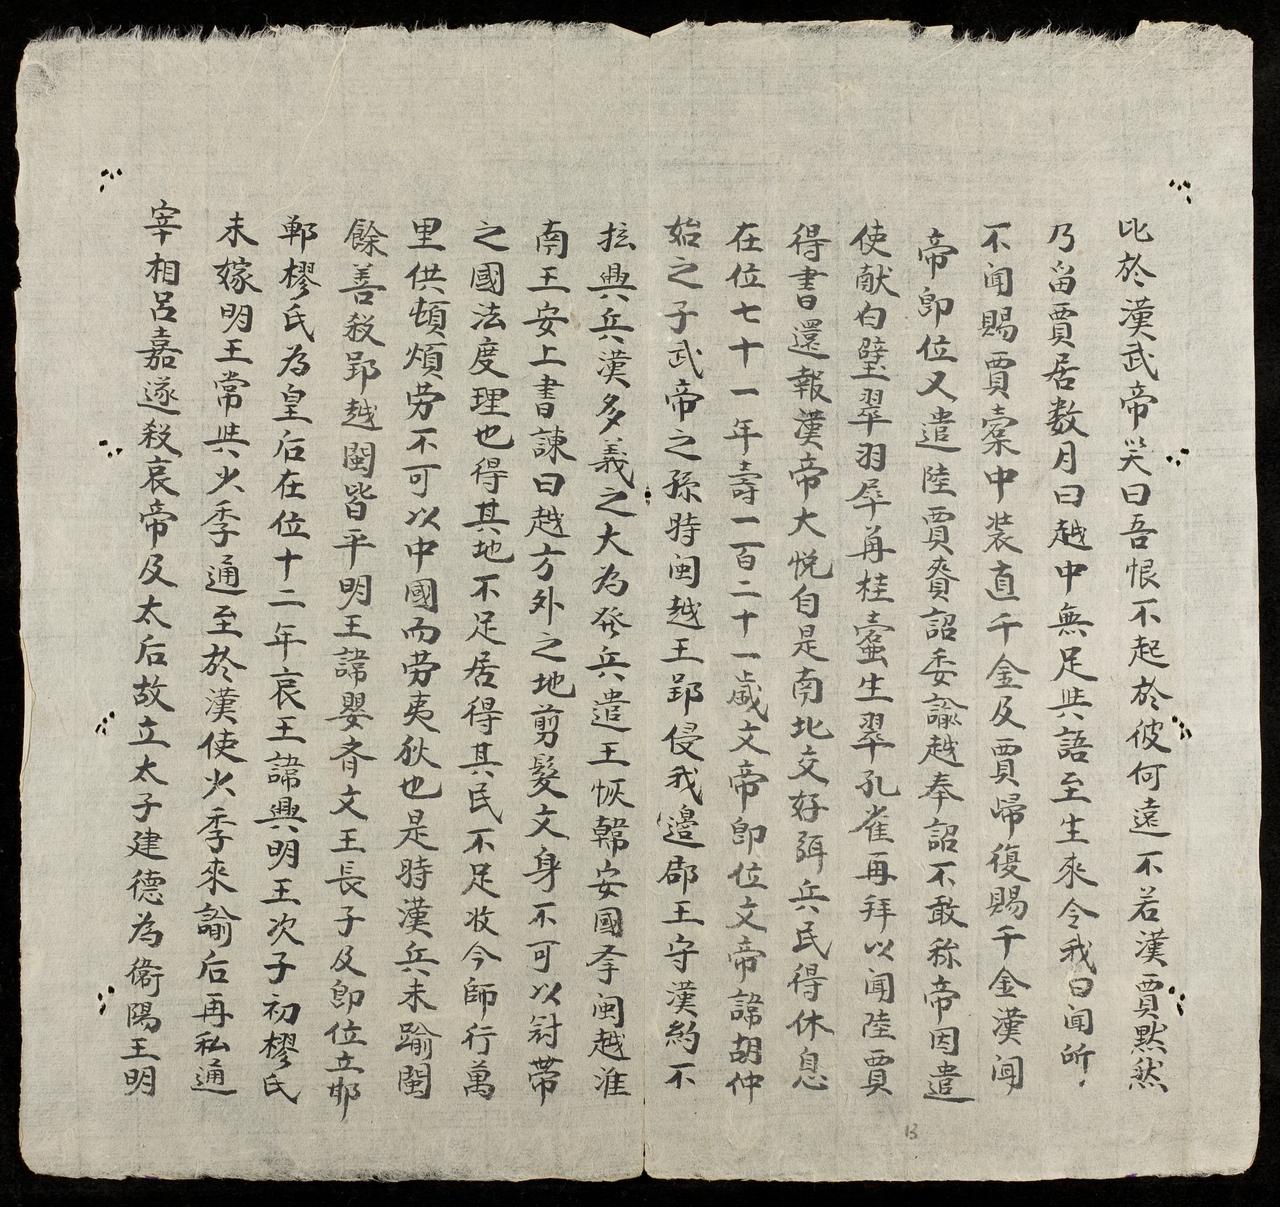 比於漢武帝笑曰吾恨不起於彼何遠不若漢賈黙然
乃畱賈居数月曰越中無足與語至生來令我日闻所
不闻賜賈橐中装直千金及賈㱕復賜千金漢闻
帝即位又遣陸賈賫詔委諭越奉詔不敢称帝因遣
使献白璧翠羽犀角桂蠹生翠孔雀再拜以闻陸賈
得書還報漢帝大悦自是南北交好弭兵民得休息
在位七十一年壽一百二十一歲文帝即位文帝諱胡仲
始之子武帝之孫時闽越王郢侵我邉郡王守漢約不
拡興兵漢多義之大為發兵遣王恢韓安國李闽越淮
南王安上書諌曰越方外之地剪髮文身不可以冠带
之國法度理也得其地不足居得其民不足收今師行萬
里供頓煩劳不可以中國而劳夷狄也是時漢兵未踰閩
餘善殺郢越閩皆平明王諱嬰齊文王長子及即位立邯
鄲樛氏為皇后在位十二年哀王諱興明王次子初樛氏
未嫁明王常與少季通至於漢使少季來諭后再私通
宰相呂嘉遂殺哀帝及太后故立太子建德為衞陽王明
13